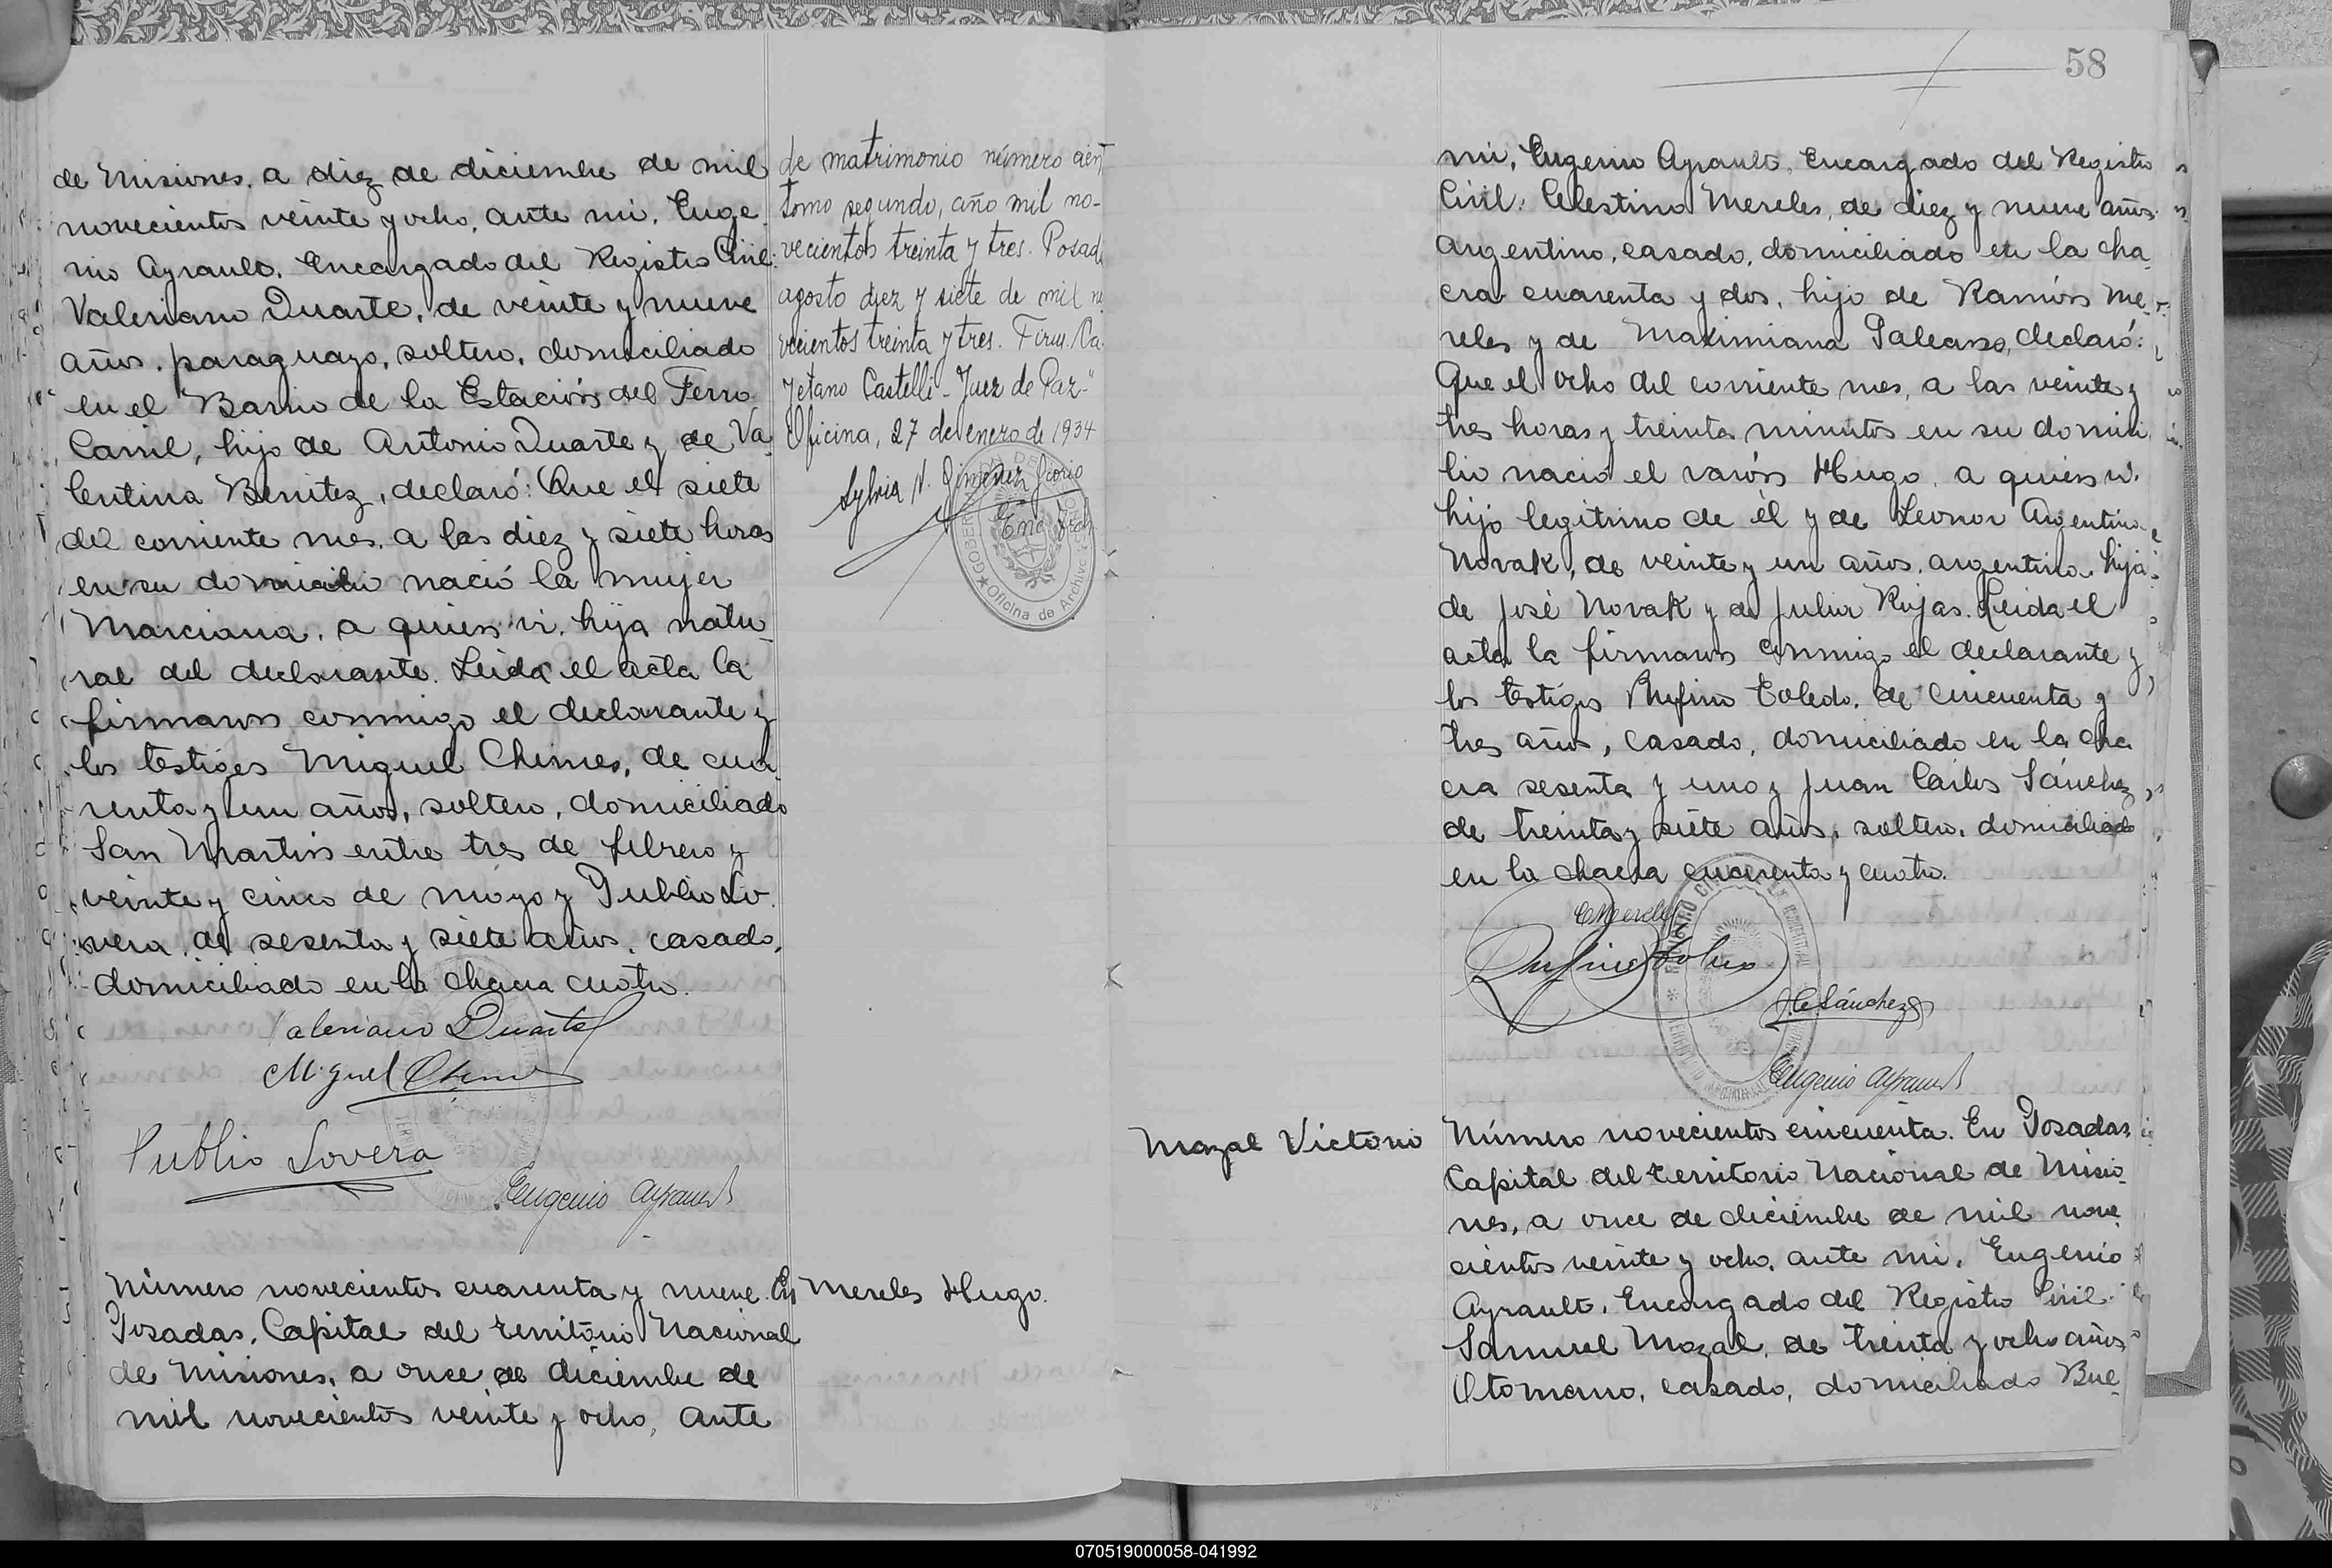 de Misiones, a diez de diciembre de mil
novecientos veinte y ocho, ante mi, Euge
nio Ayrault, Encargado del Registro Civil:
Valeriano Duarte, de veinte y nueve
años, paraguayo, soltero, domiciliado
en el Barrio de la Estación del Ferro
Carril, hijo de Antonio Duarte y de Va-
lentina Benitez, declaró: Que el siete
del corriente mes, a las diez y siete horas
en su domicilio nació la mujer
Marciana, a quien vi, hija natu-
ral del declarante. Leida el acta la
firmaron conmigo el declarante y
los testigos Miguel Chimes, de cua
renta y un años, soltero, domiciliado
San Martin entre tres de febrero y
veinte y cinco de mayo y Publio Lo-
vera, de sesenta y siete años, casado,
domiciliado en la chacra cuatro.
Valeriano Duarte
Miguel
Publio Lovera
Eugenio Ayrault
Número novecientos cuarenta y nueve. En
Posadas, Capital del territorio Nacional
de Misiones, a once de diciembre de
mil novecientos veinte y ocho, ante
de matrimonio número cien
tomo segundo, año mil no-
vecientos treinta y tres. Posad
agosto diez y siete de mil no
vecientos treinta y tres. Firm. Ca-
yetano Castelli - Juez de Paz-"
Oficina, 27 de enero de 1934
Sylvia N. Gimenez Giorio
Enc. Arch
GOBER
Oficina de Archivo
Mereles Hugo.
58
mi, Eugenio Ayrault, Encargado del Registro
Civil: Celestino Mereles, de diez y nueve años
argentino, casado, domiciliado en la cha
cra cuarenta y dos, hijo de Ramón Me-
reles y de Maximiana Galeano, declaró:
Que el ocho del corriente mes, a las veinte y
tres horas y treinta minutos en su domici
lio nació el varón Hugo, a quien vi,
hijo legitimo de él y de Leonor Argentina
Novak, de veinte y un años, argentina, hija
de José Novak y de Julia Rojas. Leida el
acta la firmaron conmigo el declarante y
los testigos Rufino Toledo, de cincuenta y
tres años, casado, domiciliado en la cha
cra sesenta y uno y Juan Carlos Sánchez,
de treinta y siete años, soltero, domiciliado
en la chacra cuarenta y cuatro.
CMereles
Rufino Toledo
JCSánchez
REGISTRO CI
Eugenio Ayrault
Mazal Victorio
Número novecientos cincuenta. En Posadas
Capital del territorio Nacional de Misio-
nes, a once de diciembre de mil nove
cientos veinte y ocho, ante mi, Eugenio
Ayrault, Encargado del Registro Civil:
Samuel Mazal, de treinta y ocho años
Otomano, casado, domiciliado Bue-
070519000058-041992